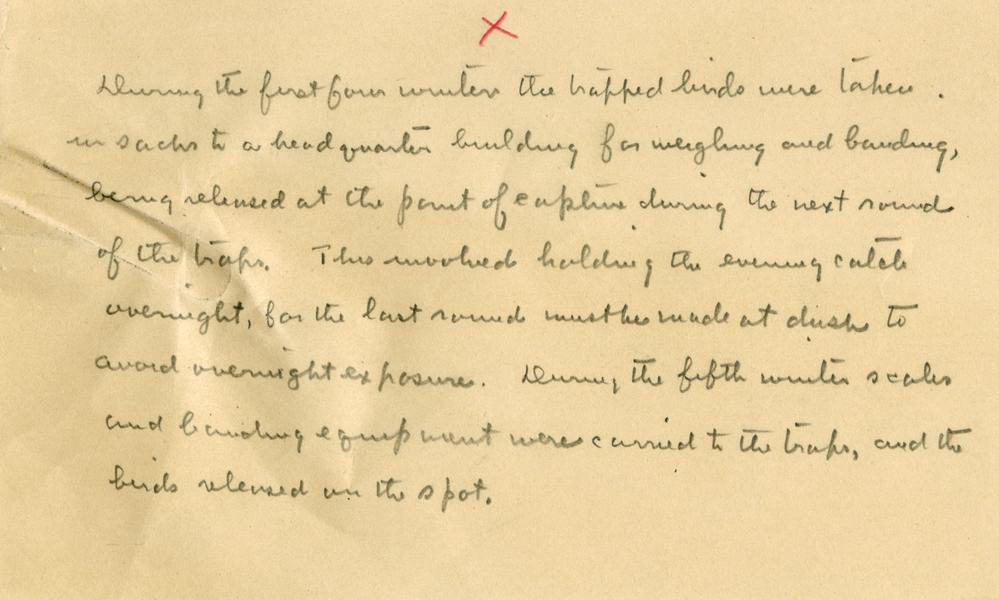 During the first four winters the trapped birds were taken
in sacks to a headquarters building for weighing and banding,
being released at the point of capture during the next round
of the traps. This involved holding the evening catch
overnight, for the last round must be made at dusk to
avoid overnight exposure. During the fifth winter scales
and banding equipment were carried to the traps, and the
birds released on the spot.